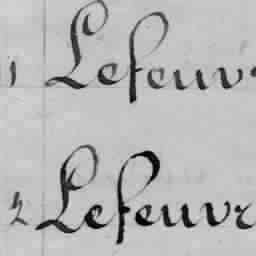 1 Lefeuvr
2 Lefeuvr